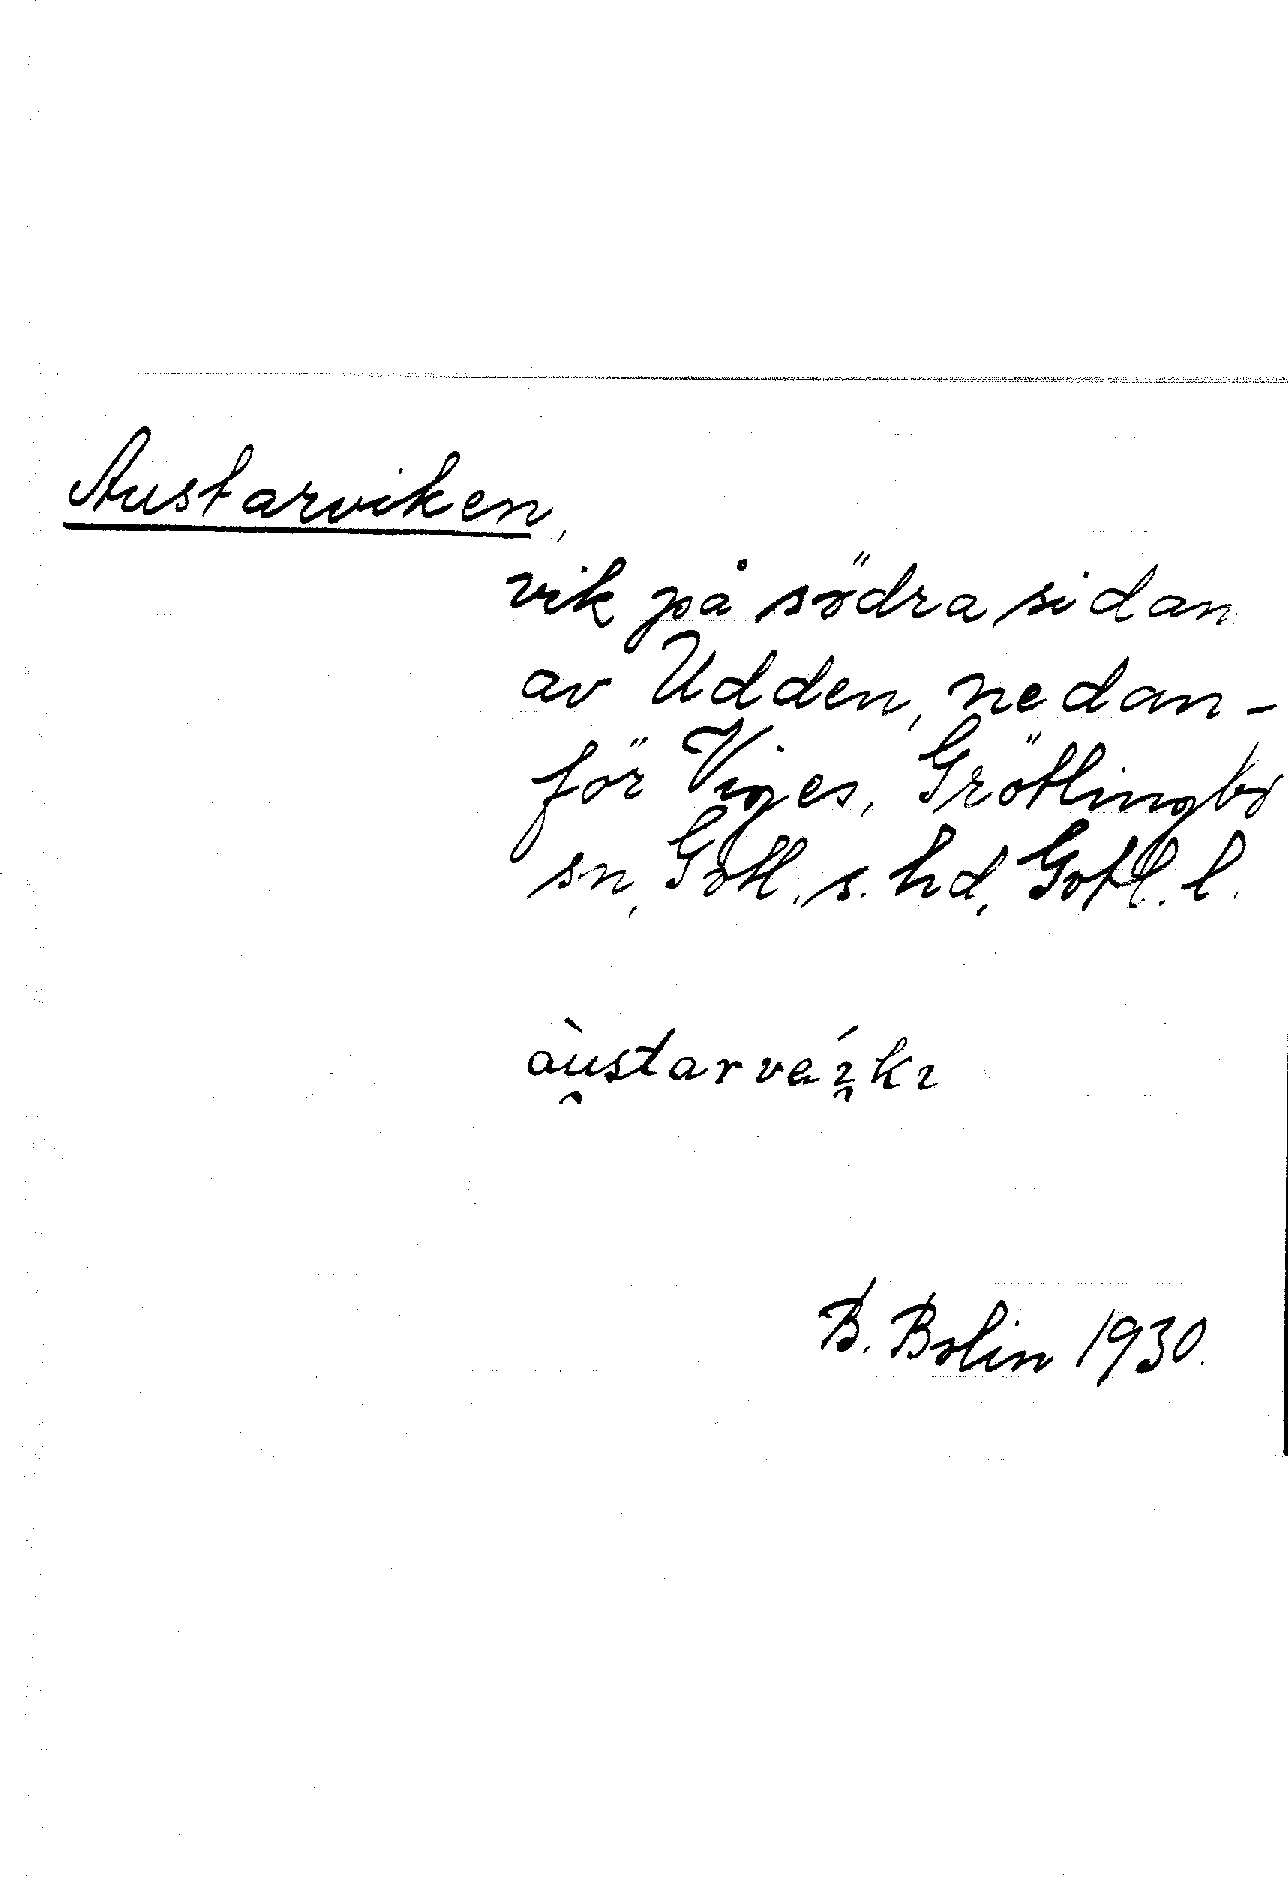 Austarviken,
vik på södra sidan
av Udden, nedan-
för Viges, Grötlingbo
sn, Gotl. s. hd, Gotl. l.
àu̯starvaɩ̯́kɩ
B. Bolin 1930.